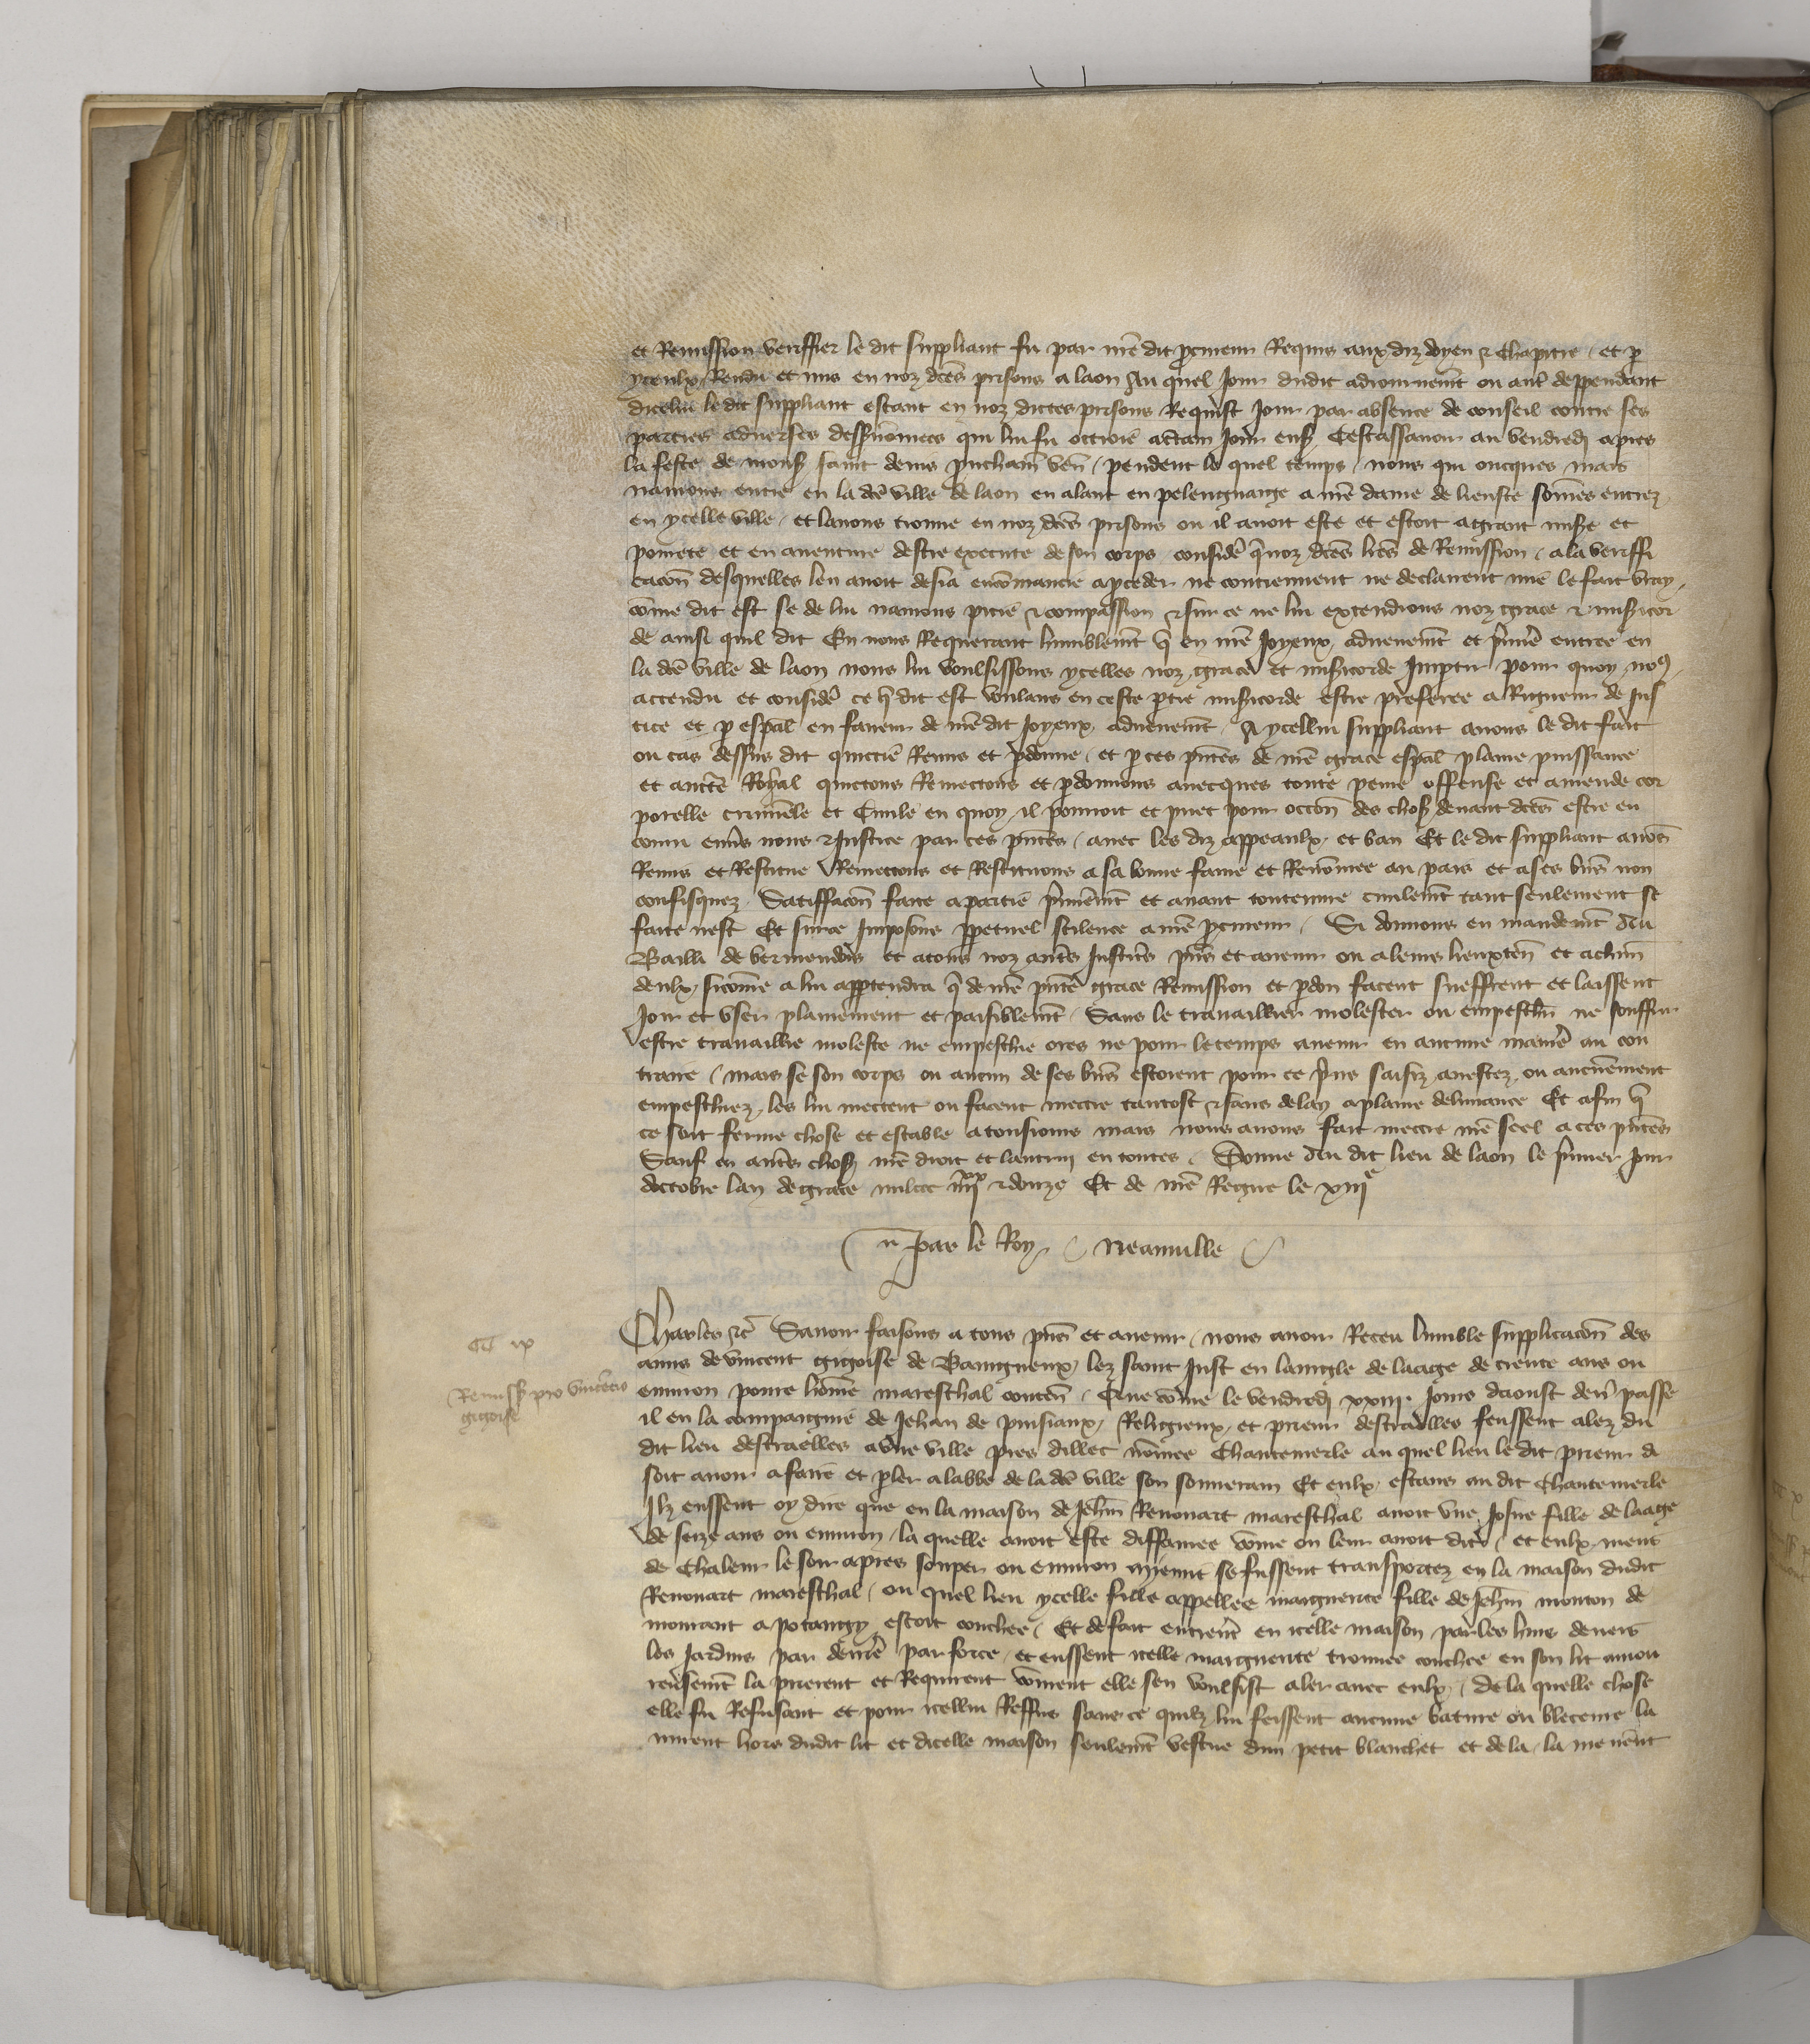 et Remission veriffier le dit suppliant fu par nr̄e dit ꝓcureur Requis aux diz doyen & Chapitre / et p̱
yceulx Rendu et mis en noz dc̄es prisons a laon Au quel Jour dudit adiournemt̄ ou autr̄ deppendant
dicelui le dit suppliant estant en noz dictes prisons Requist Jour par absence de conseil contre ses
parties aduerses dessusnōmees qui lui fu ottroie a certain Jour ens̄ Cestassauoir au vendredi apres
la feste de mons̄ saint denis prochain ven̄ / pendent le quel temps / nous qui oncques mais
nauions entre en la dc̄e ville de laon en alant en pelerignaige a nr̄e dame de liensse sōmes entrez
en ycelle ville / et lauons trouue en noz dc̄es prisons ou il auoit este et estoit a grant mis̄e et
pourete et en auenture destre execute de son corps / considere q̄ noz dc̄es lr̄es de Remission / a la veriffi
cacōn desquelles len auoit desia encōmancie a proceder ne contiennent ne declairent mie le fait vray /
cōme dit est se de lui nauions pitie & compassion & sur ce ne lui extendions noz grace & mis̄icor
de ainsi quil dit En nous Requerant humblemt̄ q̄ en nr̄e Joyeux aduenemt̄ et p̄miere entree en
la dc̄e ville de laon nous lui voulsissons ycelles noz grace et mis̄icorde Impartir pour quoy noꝰ
attendu et considere ce q̄ dit est voulans en ceste p̱tie mis̄icorde estre preferee a Rigueur de Jus
tice et p̱ esp̄al en faueur de nr̄e dit Joyeux aduenemt̄ / A ycellui suppliant auons le dit fait
ou cas dessus dit quictie Remis et p̱donne / et p̱ ces pn̄tes de nr̄e grace esp̄al plaine puissance
et auctē Royal quictons Remectons et p̱donnons auecques toute peine offense et amende cor
porelle criminele et Ciuile en quoy il pourroit et puet pour occōn des chos̄ deuant dc̄es estre en
couru enu̅s nous & Justice par ces pn̄tes / auec les diz appeaulx et ban Et le dit suppliant auōs
Remis et Restitue Remectons et Restituons a sa bonne fame et Renōmee au pais et a ses biēs non
confisquez / Satiffacōn faite a partie p̄mieremt̄ et auant toutenuie ciuilemt̄ tant seulement se
faite nest Et sur ce Imposons perpetuel scilence a nr̄e ꝓcureur / Si donnons en mandemt̄ Au
Bailli de vermendois et a tous noz autr̄es Justiciers pn̄s et auenir ou a leurs lieuxten̄ et a chūn
deulx sicōme a lui app̱tendra q̄ de nr̄e pn̄te grace Remission et p̱don facent sueffrent et laissent
Joir et vser plainement et paisiblemt̄ Sans le trauaillier molester ou empeschier ne souffrir
estre trauaillie moleste ne empeschie ores ne pour le temps auenir en aucune maniere au con
traire / mais se son corps ou aucun de ses biēs estoient pour ce prins saisiz arrestez ou aucunement
empeschiez les lui mectent ou facent mectre tantost & sans delay a plaine deliurance Et afin q̄
ce soit ferme chose et estable a tousiours mais nous auons fait mectre nr̄e seel a ces pn̄tes
Sauf en autr̄es chos̄ nr̄e droit et lautruy en toutes / Donne Au dit lieu de laon le p̄mier Jour
doctobre lan de grace mil ccc iiiixx & douze Et de nr̄e Regne le xiiie
Par le Roy / Neauuille
ix
Charles &c̄ Sauoir faisons a tous pn̄s et auenir / nous auoir Receu humble supplicacōn des
Remiss̄ pro vincēcio
gigoise
amis de vincent gigoise de Baingneux lez saint Just en laingle de laage de trente ans ou
enuiron poure hōme mareschal conten̄ / Que cōme le vendredi xxiii Jours daoust derr̄ passe
il en la compaignie de Jehan de puisiaux / Religieux et prieur destraelles feussent alez du
dit lieu destraelles a vne ville pres dillec nōmee Chantemerle au quel lieu le dit prieur di
soit auoir a faire et p̱ler a labbe de la dc̄e ville son souuerain Et eulx estans au dit Chantemerle
Ilz eussent oy dire que en la maison de Jeh̄n Renouart mareschal auoit vne Josne fille de laage
de seize ans ou enuiron / la quelle auoit este diffamee cōme on leur auoit dit / et eulx meus
de Chaleur le soir apres souper ou enuiron mienuit se fussent transportez en la maison dudit
Renouart mareschal / ou quel lieu ycelle fille appellee marguerite fille de Jeh̄n mouton de
mourant a potangy estoit couchee / Et de fait entrer̄t en icelle maison par les huis deuers
les Jardins par derriere par force / et eussent icelle marguerite trouuee couchee en son lit amou
reusemt̄ la prierent et Requirent cōment elle sen voulsist aler auec eulx / de la quelle chose
elle fu Refusant et pour icellui Reffus sans ce quilz lui feissent aucune bature ou bleceure la
mirent hors dudit lit et dicelle maison seulemt̄ vestue dun petit blanchet et de la / la menēt